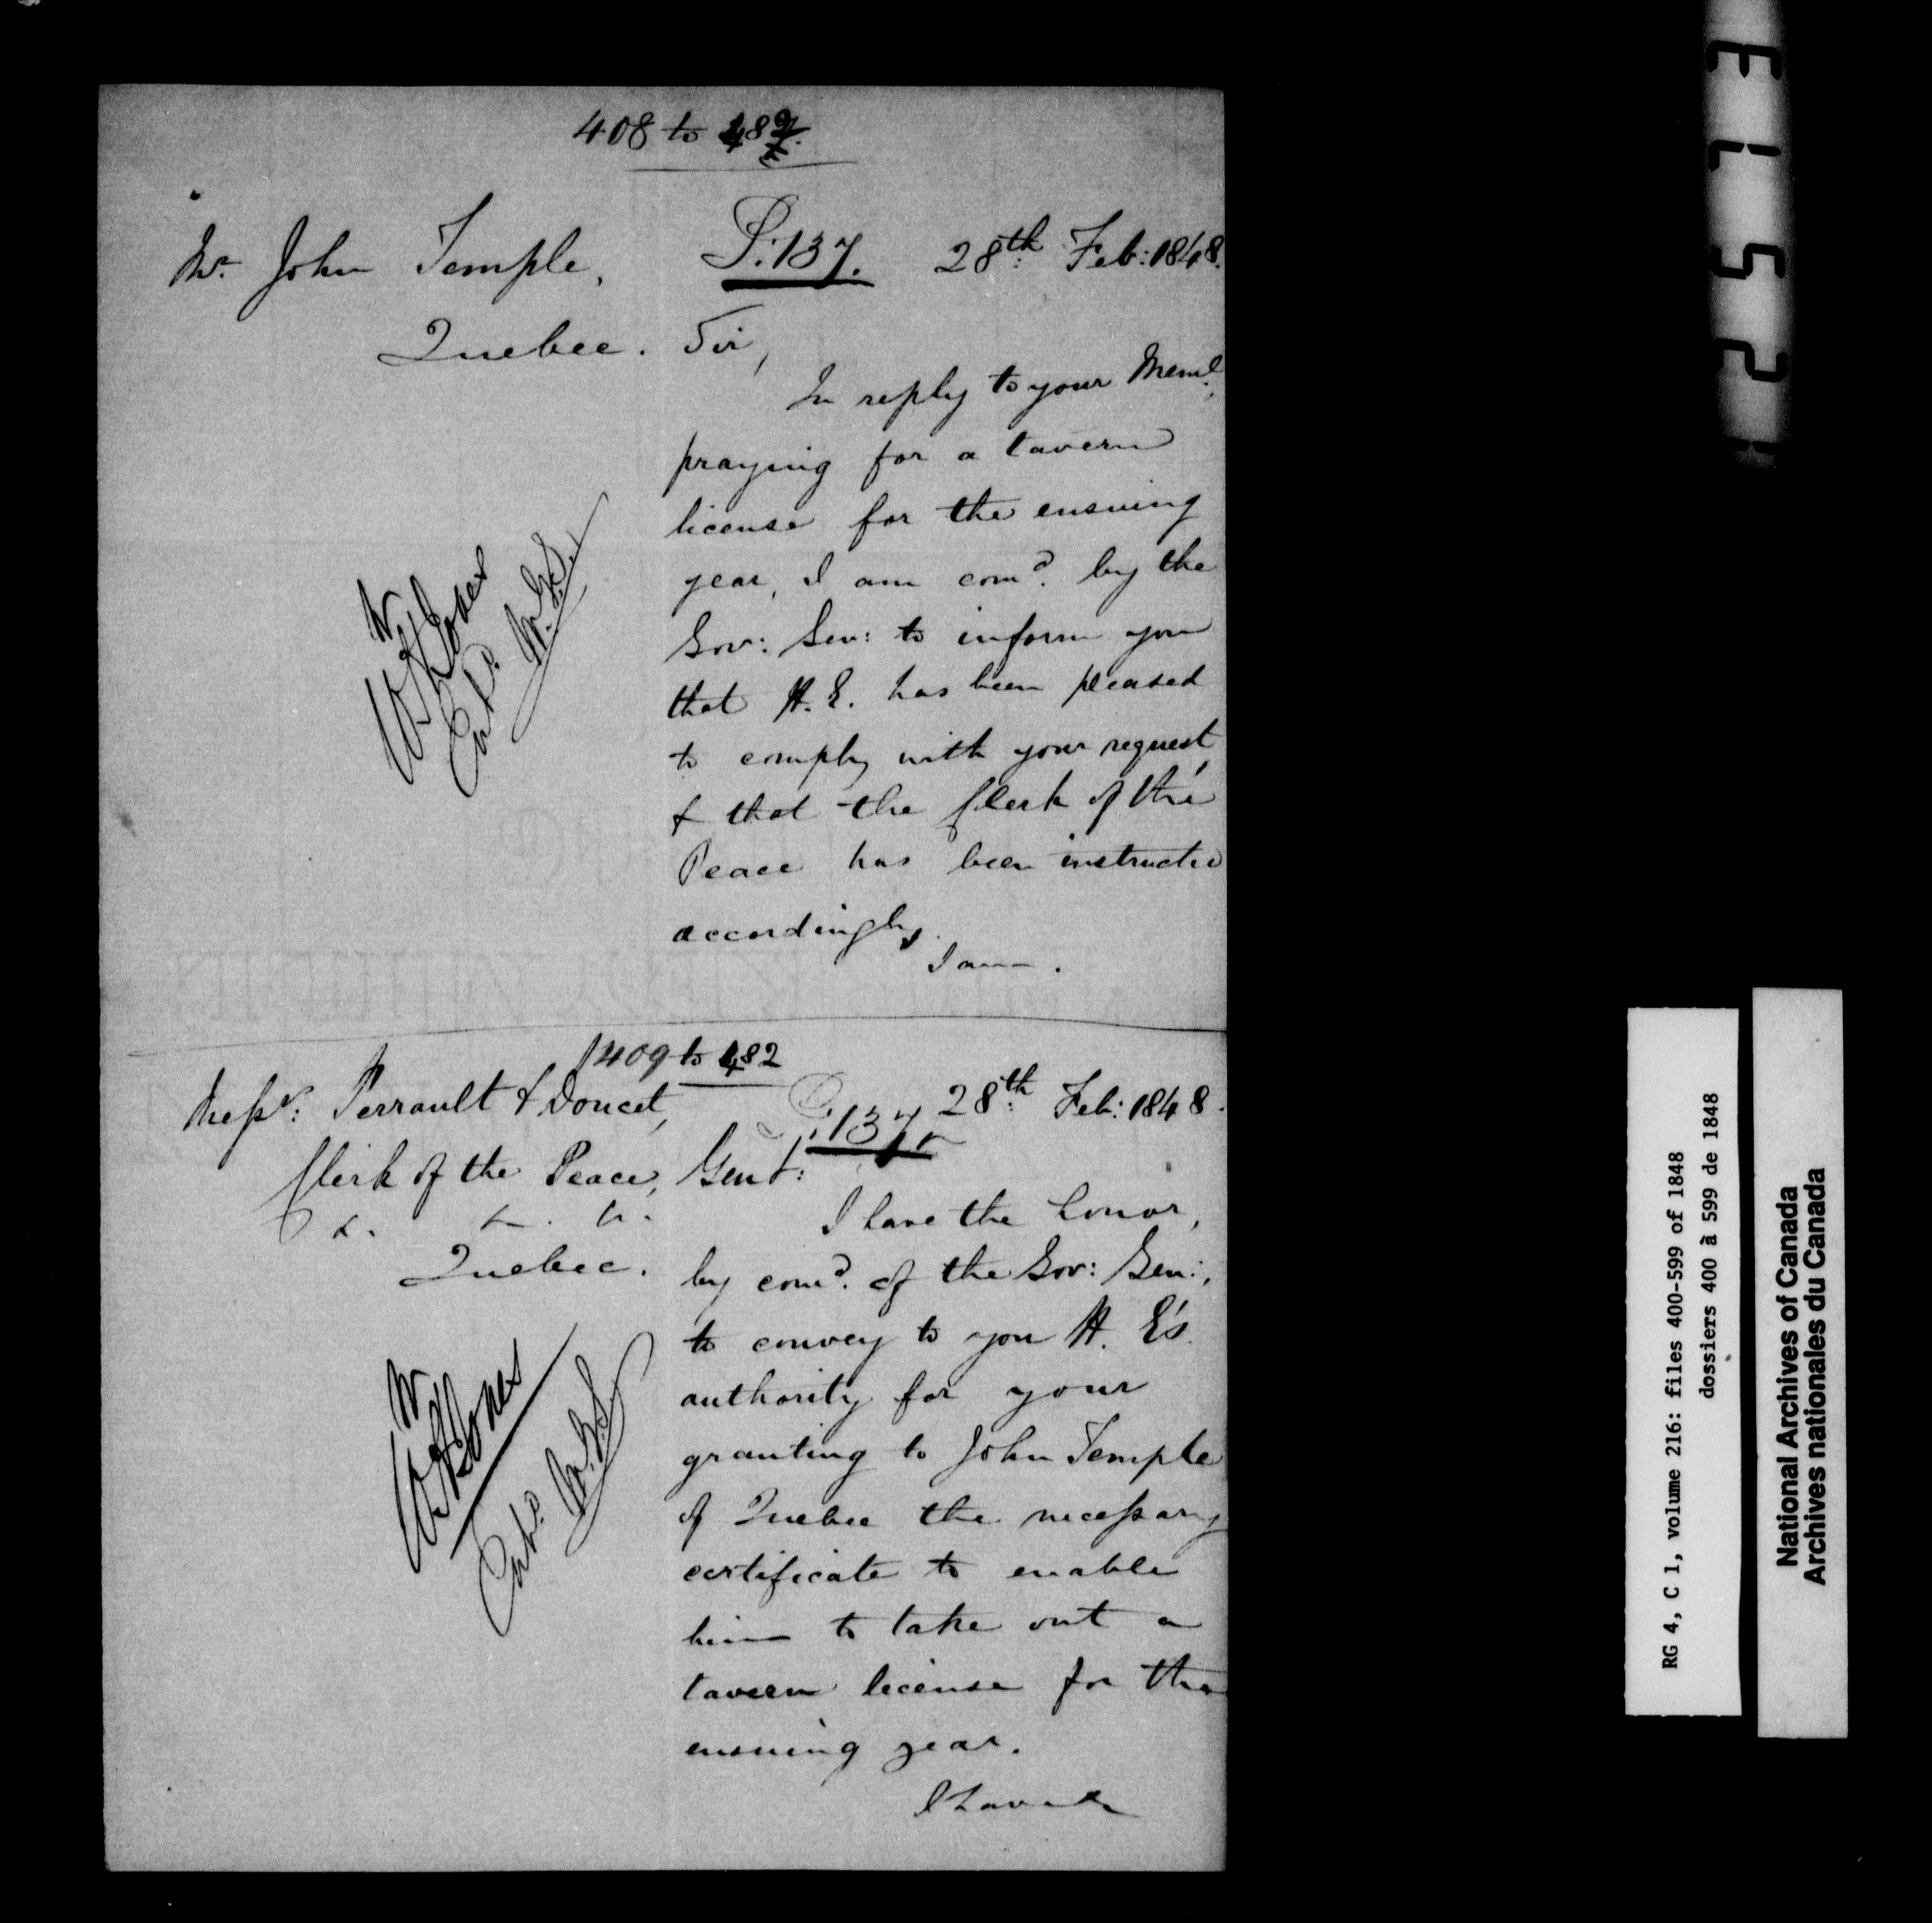 408 to 482
Mr. John Temple, P.137. 28th Feb: 1848.
Quebec. Sir,
In reply to your Meml.
praying for a tavern
license for the ensuing
year, I am comd. by the
Gov: Gen: to inform you
that H.E. has been pleased
to comply with your request
& that the Clerk of the
Peace has been instructed
accordingly.
I am .
409 to 482
Messrs: Perrault & Doucet, P.137 28th Feb: 1848.
Clerk of the Peace, Gent:
&. &. &.
I have the honor,
Quebec.
by comd. of the Gov: Gen:,
to convey to you H. E's.
authority for your
granting to John Temple
of Quebec the necessary
certificate to enable
him to take out a
tavern license for the
ensuing year.
I have &
Entd.
Entd.
E152
RG 4, C 1, volume 216: files 400-599 of 1848
dossiers 400 à 599 de 1848
National Archives of Canada
Archives nationales du Canada